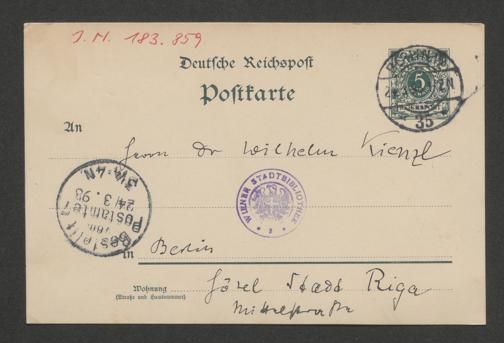 J. N. 183.859
Deutsche Reichspost
Postkarte
BERLIN, W.
5
35
An
Herrn Dr Wilhelm Kienzl
WIENER STADTBIBLIOTHEK
Bestellt
Postamte
24/3.93
3¼-4N.
in Berlin
Wohnung Hôtel Stadt Riga
(Straße und Hausnummer)
Mittelstraße